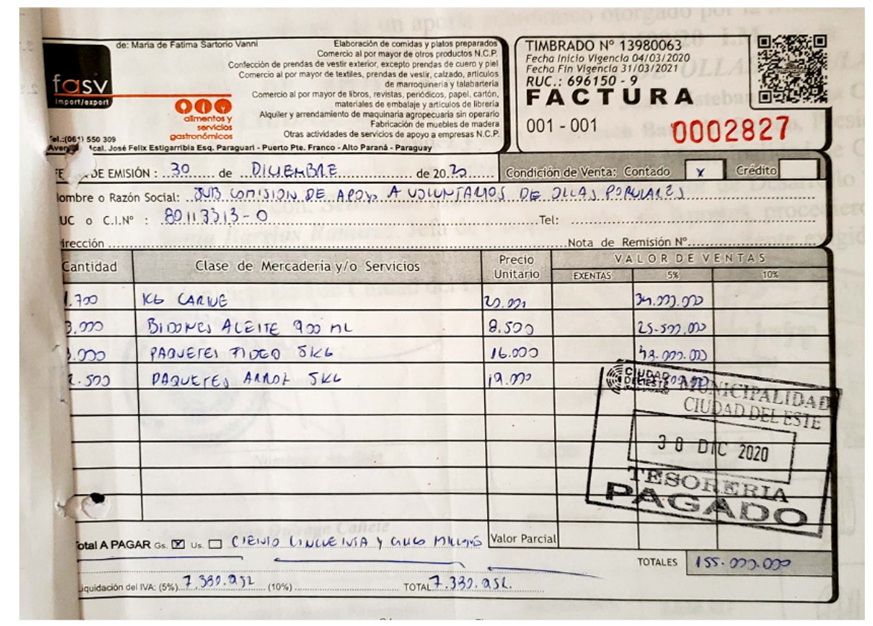 de: Maria de Fatima Sartorio Vanni
fasv
import/export
alimentos y
servicios
gastronómicos
Tel.:(061) 550 309
Elaboración de comidas y platos preparados
Comercio al por mayor de otros productos N.C.P.
Confección de prendas de vestir exterior, excepto prendas de cuero y piel
Comercio al por mayor de textiles, prendas de vestir, calzado, articulos
de marroquineria y talabarteria
Comercio al por mayor de libros, revistas, periódicos, papel, cartón,
materiales de embalaje y articulos de libreria
Alquiler y arrendamiento de maquinaria agropecuaria sin operario
Fabricación de muebles de madera
Otras actividades de servicios de apoyo a empresas N.C.P.
Mcal. José Felix Estigarribia Esq. Paraguari - Puerto Pte. Franco - Alto Paraná - Paraguay
TIMBRADO Nº 13980063
Fecha Inicio Vigencia 04/03/2020
Fecha Fin Vigencia 31/03/2021
RUC.: 696150 - 9
FACTURA
001 - 001 0002827
DE EMISIÓN : 30 de DICIEMBRE de 2020 Condición de Venta: Contado x Crédito
ombre o Razón Social: SUB COMISION DE APOYO A VOLUNTARIOS DE OLLAS POPULARES
UC o C.I.Nº : 80113313-0 Tel:
irección Nota de Remisión Nº
Cantidad Clase de Mercadería y/o Servicios Precio Unitario VALOR DE VENTAS
EXENTAS 5% 10%
.700 KG CARNE 34.000.000
3.000 BIDONES ACEITE 900 ML 8.500 25.500.000
.000 PAQUETES FIDEO 5KG 16.000
.500 PAQUETES ARROZ 5KG 19.000
CIUDAD DEL ESTE
MUNICIPALIDAD
CIUDAD DEL ESTE
30 DIC 2020
TESORERIA
PAGADO
otal A PAGAR Gs. x Us. CIENTO CINCUENTA Y CINCO MILLONES Valor Parcial
TOTALES 155.000.000
iquidación del IVA: (5%) 7.380.952 (10%) TOTAL 7.380.952